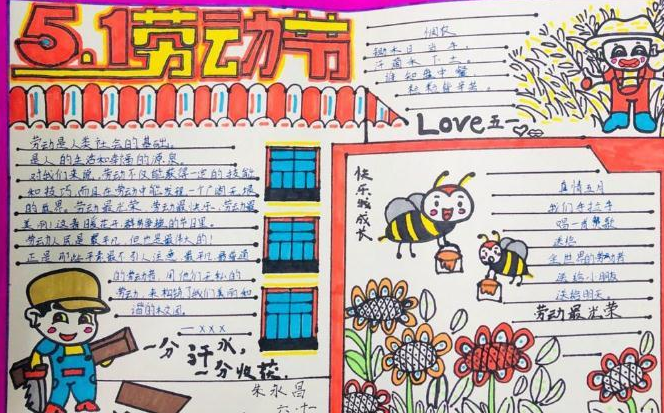 5.1劳动节
悯农
锄禾日当午，
汗滴禾下土。
谁知盘中餐，
粒粒皆辛苦。
Love五一
劳动是人类社会的基础，
是人的生活和幸福的源泉。
对我们来说，劳动不仅能获得一定的技能
和技巧，而且在劳动中能发现一个广阔无垠
的世界。劳动最光荣、劳动最快乐、劳动最
美丽！这春暖花开
的节日里。
劳动人民是最平凡，但也是最伟大的！
正是那些平素最不引人注意、最平凡最普通
的劳动者，用他们无私的
劳动，来构筑了我们美丽和
谐的校园。
—xxx
一分汗水，
一分收获
朱永昌
六·十一
快乐的成长
真情五月
我们手拉手
唱一首赞歌
送给
全世界的劳动者
送给小朋友
送给明天。
劳动最光荣